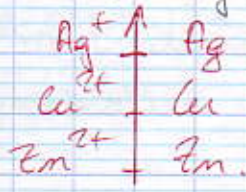 Ag⁺ Ag
Cu²⁺ Cu
Zn²⁺ Zn